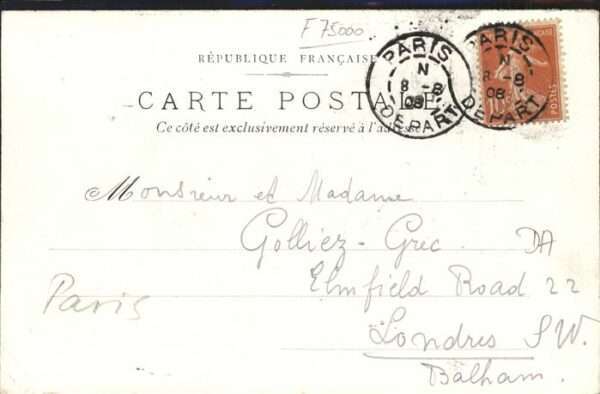 F 75000
RÉPUBLIQUE FRANÇAISE
CARTE POSTALE
Ce côté est exclusivement réservé à l'adresse
PARIS
N
8 -8
08
DEPART
PARIS
N
8 -8
08
DEPART
POSTES
Monsieur et Madame
Golliez-Grec.
DA
Elmfield Road 22
Paris
Londres S.W.
Balham.